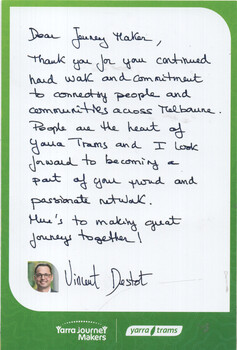 Dear Journey Maker,
Thank you for you continued
hard work and commitment
to connecting people and
communities across Melbourne.
People are the heart of
Yarra Trams and I look
forward to becoming a
part of your proud and
passionate network.
Here's to making great
journeys together!
Vincent Destot
Yarra Journey
Makers
yarra trams